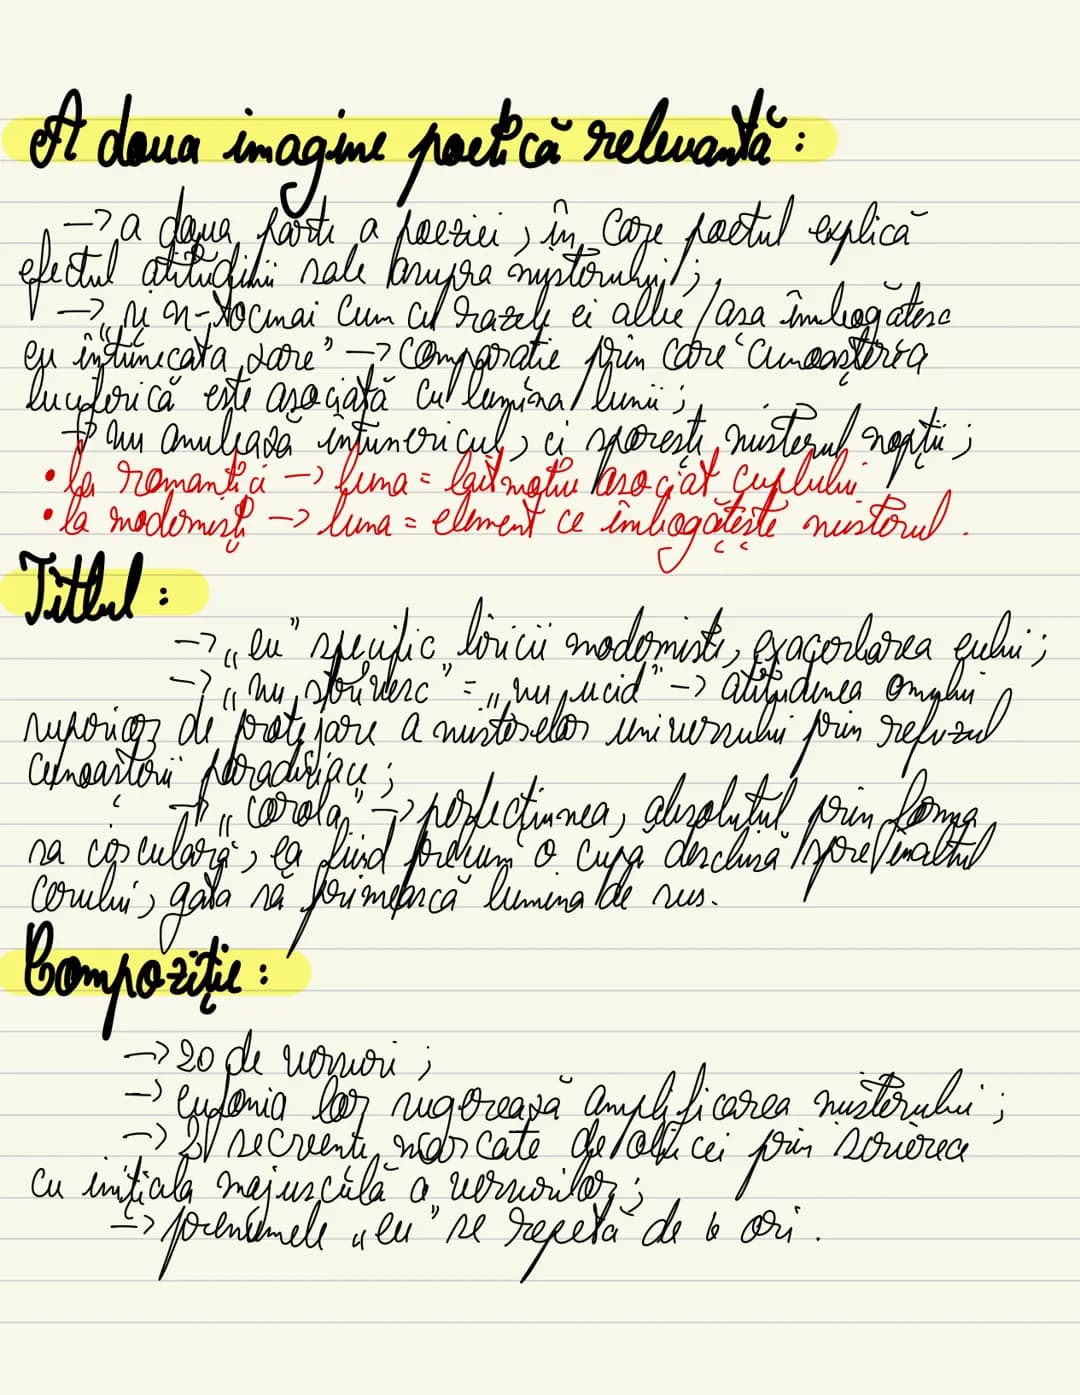 A doua imagine poetică relevantă:
-> a doua parte a poeziei, în care poetul explică
efectul atitudinii sale asupra misterului;
-> „și n-tocmai cum cu razele ei albe/asa îmbogățesc
eu întunecata zare" -> comparație prin care cunoașterea
luciferică este asociată cu lumina lunii;
-> nu anulează întunericul, ci sporește misterul nopții;
• la romantici -> luna = laitmotiv asociat cuplului
• la moderniști -> luna = element ce îmbogățește misterul.
Titlul:
-> „eu" specific liricii moderniste, exacerbarea eului;
-> „nu strivesc" = „nu ucid" -> atitudinea omului
superior de protejare a misterelor universului prin refuzul
cunoașterii paradisiace;
-> „corola" -> perfecțiunea, absolutul prin forma
sa circulară, ea fiind precum o cupa deschisă spre înaltul
cerului, gata să primească lumina de sus.
Compoziție:
-> 20 de versuri;
-> eufonia lor sugerează amplificarea misterului;
-> secvente marcate de prin scrierea
cu inițiala majusculă a versurilor;
-> pronumele „eu" se repetă de 6 ori.